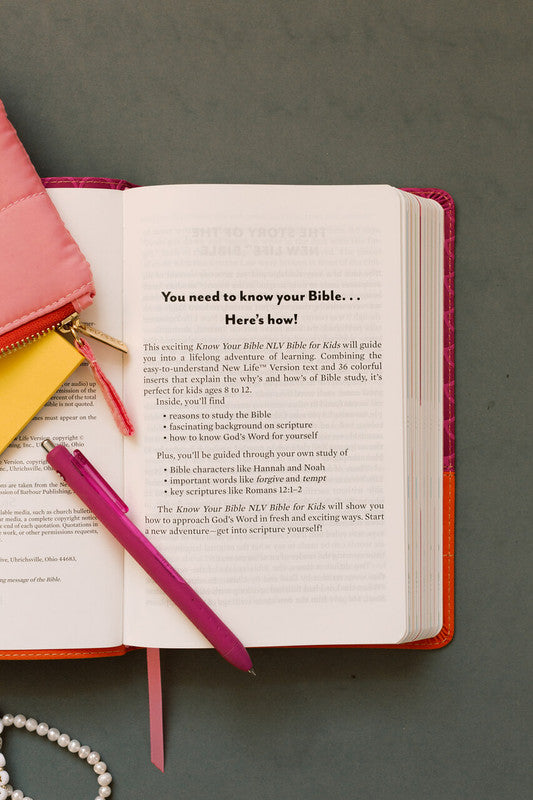 or audio) up
rmission of the
ercent of the total
ible is not quoted.
mes must appear on the
w Life Version, copyright ©
ing, Inc., Uhrichsville, Ohio
w Life Version, copyright
ing, Inc., Uhrichsville,
ons are taken from the New
ission of Barbour Publishing,
lable media, such as church bulletins
r media, a complete copyright notice
e end of each quotation. Quotations in
work, or other permissions requests,
Inc., Uhrichsville, Ohio 44683,
ing message of the Bible.
THE STORY OF THE
NEW LIFE™ BIBLE
You need to know your Bible. . .
Here's how!
This exciting Know Your Bible NLV Bible for Kids will guide
you into a lifelong adventure of learning. Combining the
easy-to-understand New Life™ Version text and 36 colorful
inserts that explain the why's and how's of Bible study, it's
perfect for kids ages 8 to 12.
Inside, you'll find
• reasons to study the Bible
• fascinating background on scripture
• how to know God's Word for yourself
Plus, you'll be guided through your own study of
• Bible characters like Hannah and Noah
• important words like forgive and tempt
• key scriptures like Romans 12:1–2
The Know Your Bible NLV Bible for Kids will show you
how to approach God's Word in fresh and exciting ways. Start
a new adventure—get into scripture yourself!